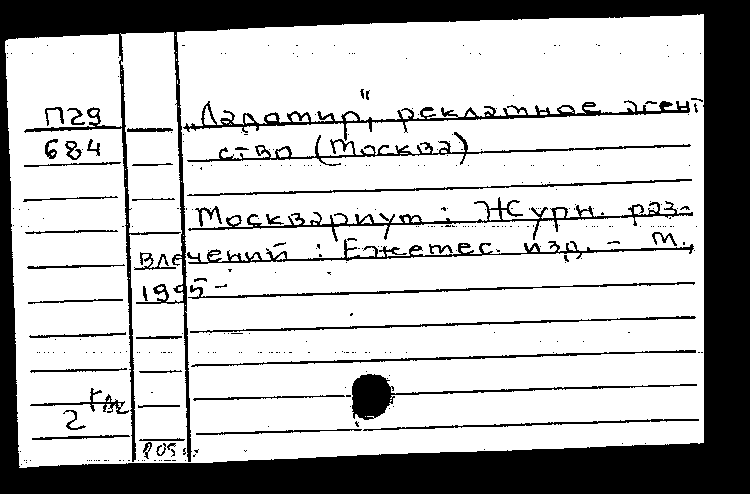 П29
684
"Ладомир", рекламное агент
ство (Москва)
Москвариум : Журн. раз-
влечений : Ежемес. изд. - М.,
1995 -
2